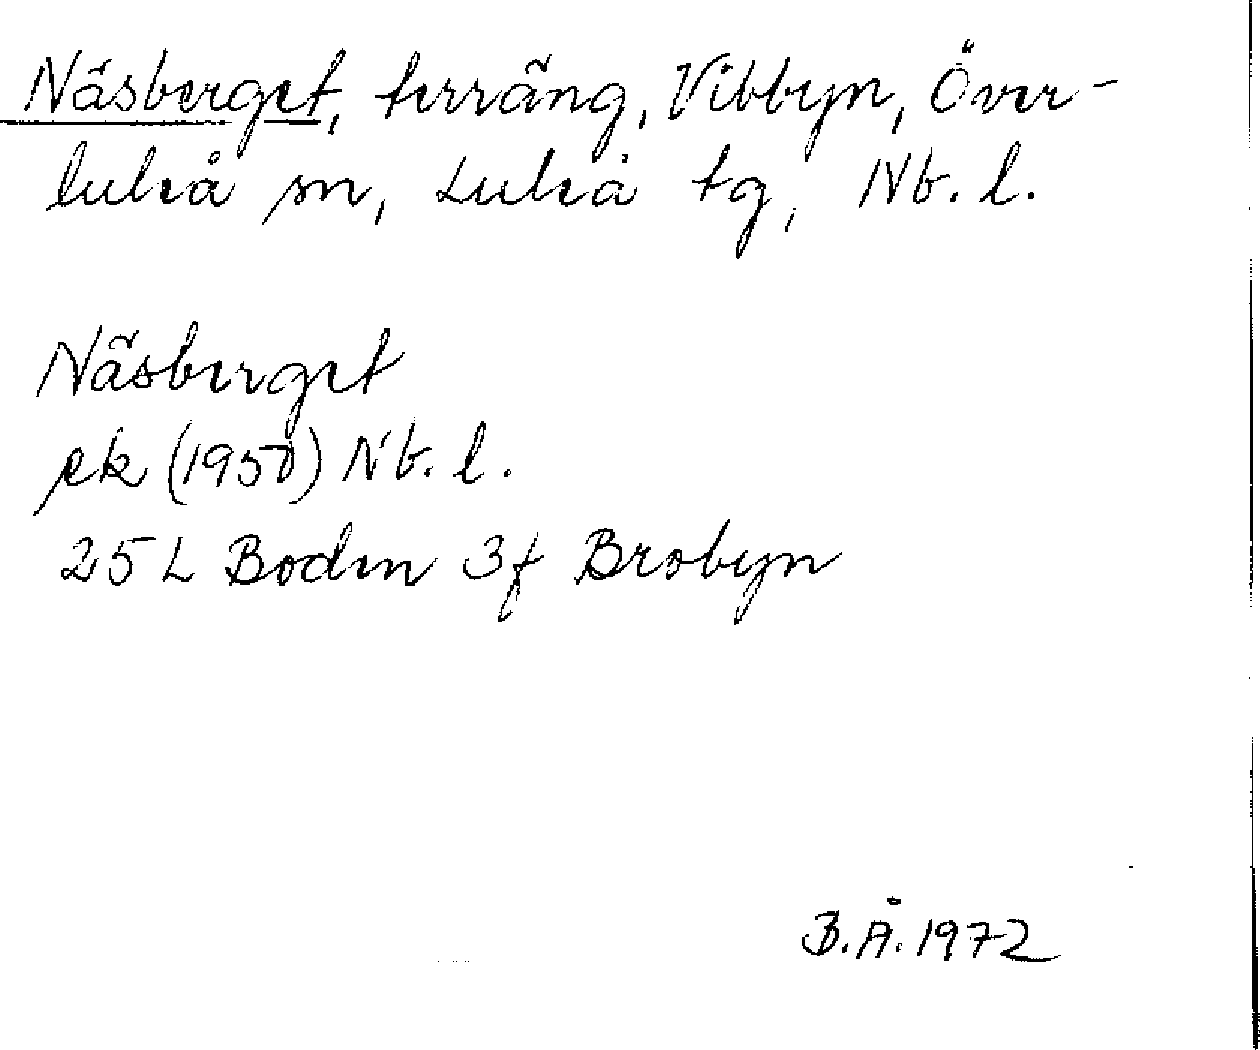 Näsberget, terräng, Vibbyn, Över-
luleå sn, Luleå tg, Nb. l.
Näsberget
ek (1950) Nb. l.
25 L Boden 3f Brobyn
B.Å. 1972